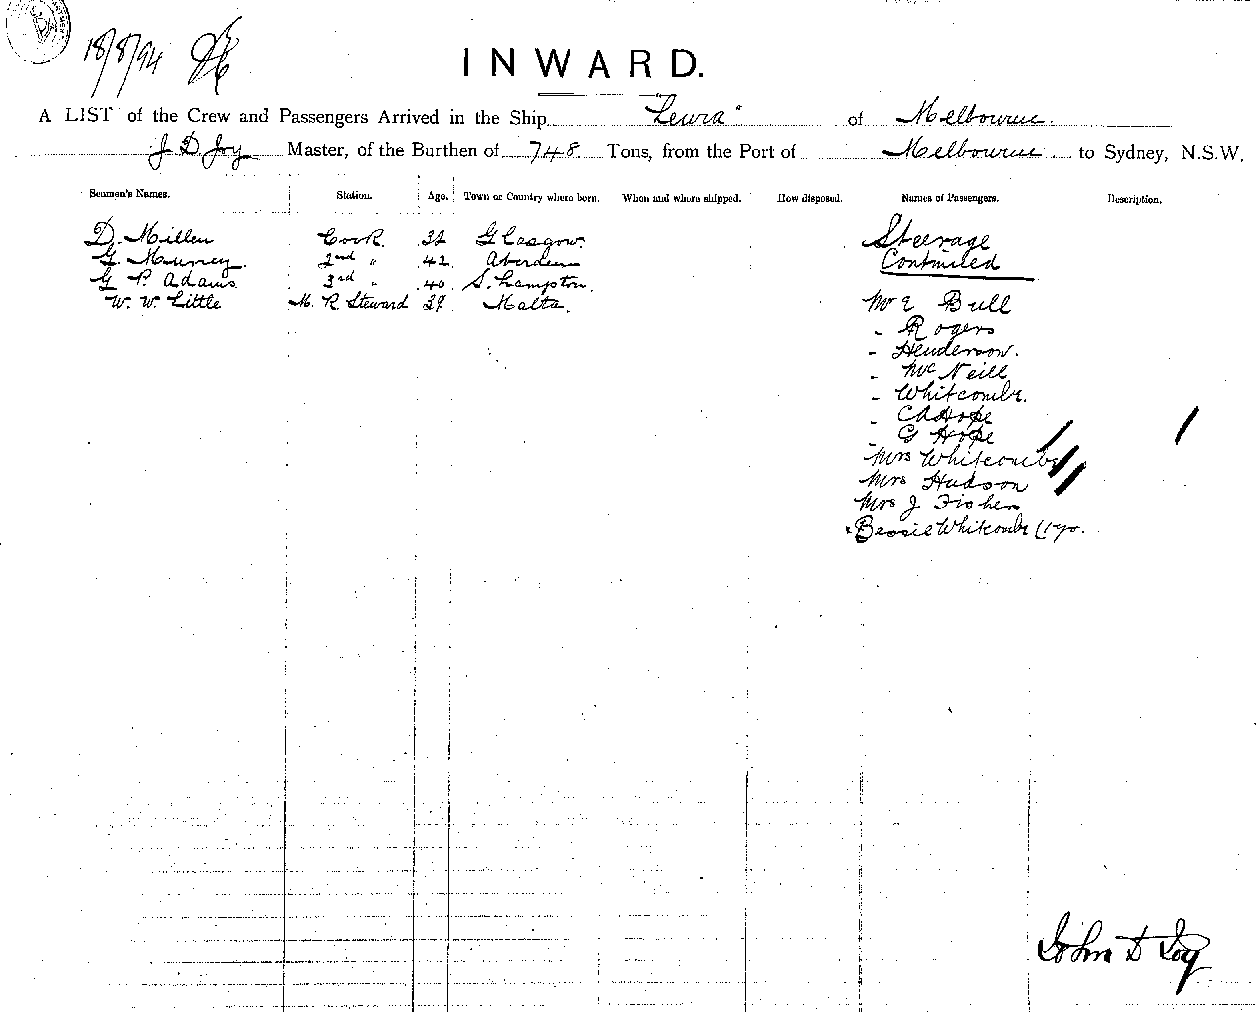 18/8/94
INWARD.
A LIST of the Crew and Passengers Arrived in the Ship "Leura" of Melbourne.
J D Joy Master, of the Burthen of 748 Tons, from the Port of Melbourne to Sydney, N.S.W.
Seamen's Names. Station. Age. Town or Country where born. When and where shipped. How disposed. Names of Passengers. Description.
D. Millen Cook 32 Glasgow. Steerage
G. Murray. 2nd " 42 Aberdeen Continued
G P. Adams 3rd " 40 S.hampton.
W. W. Little M. R. Steward 39 Malta. Mr E Bull
- Rogers
- Henderson.
- McNeill
- Whitcombe.
- C A Hope
- G Hope
Mrs Whitcombe
Mrs Hudson
Mrs J Fisher
Bessie Whitcombe
John D Joy